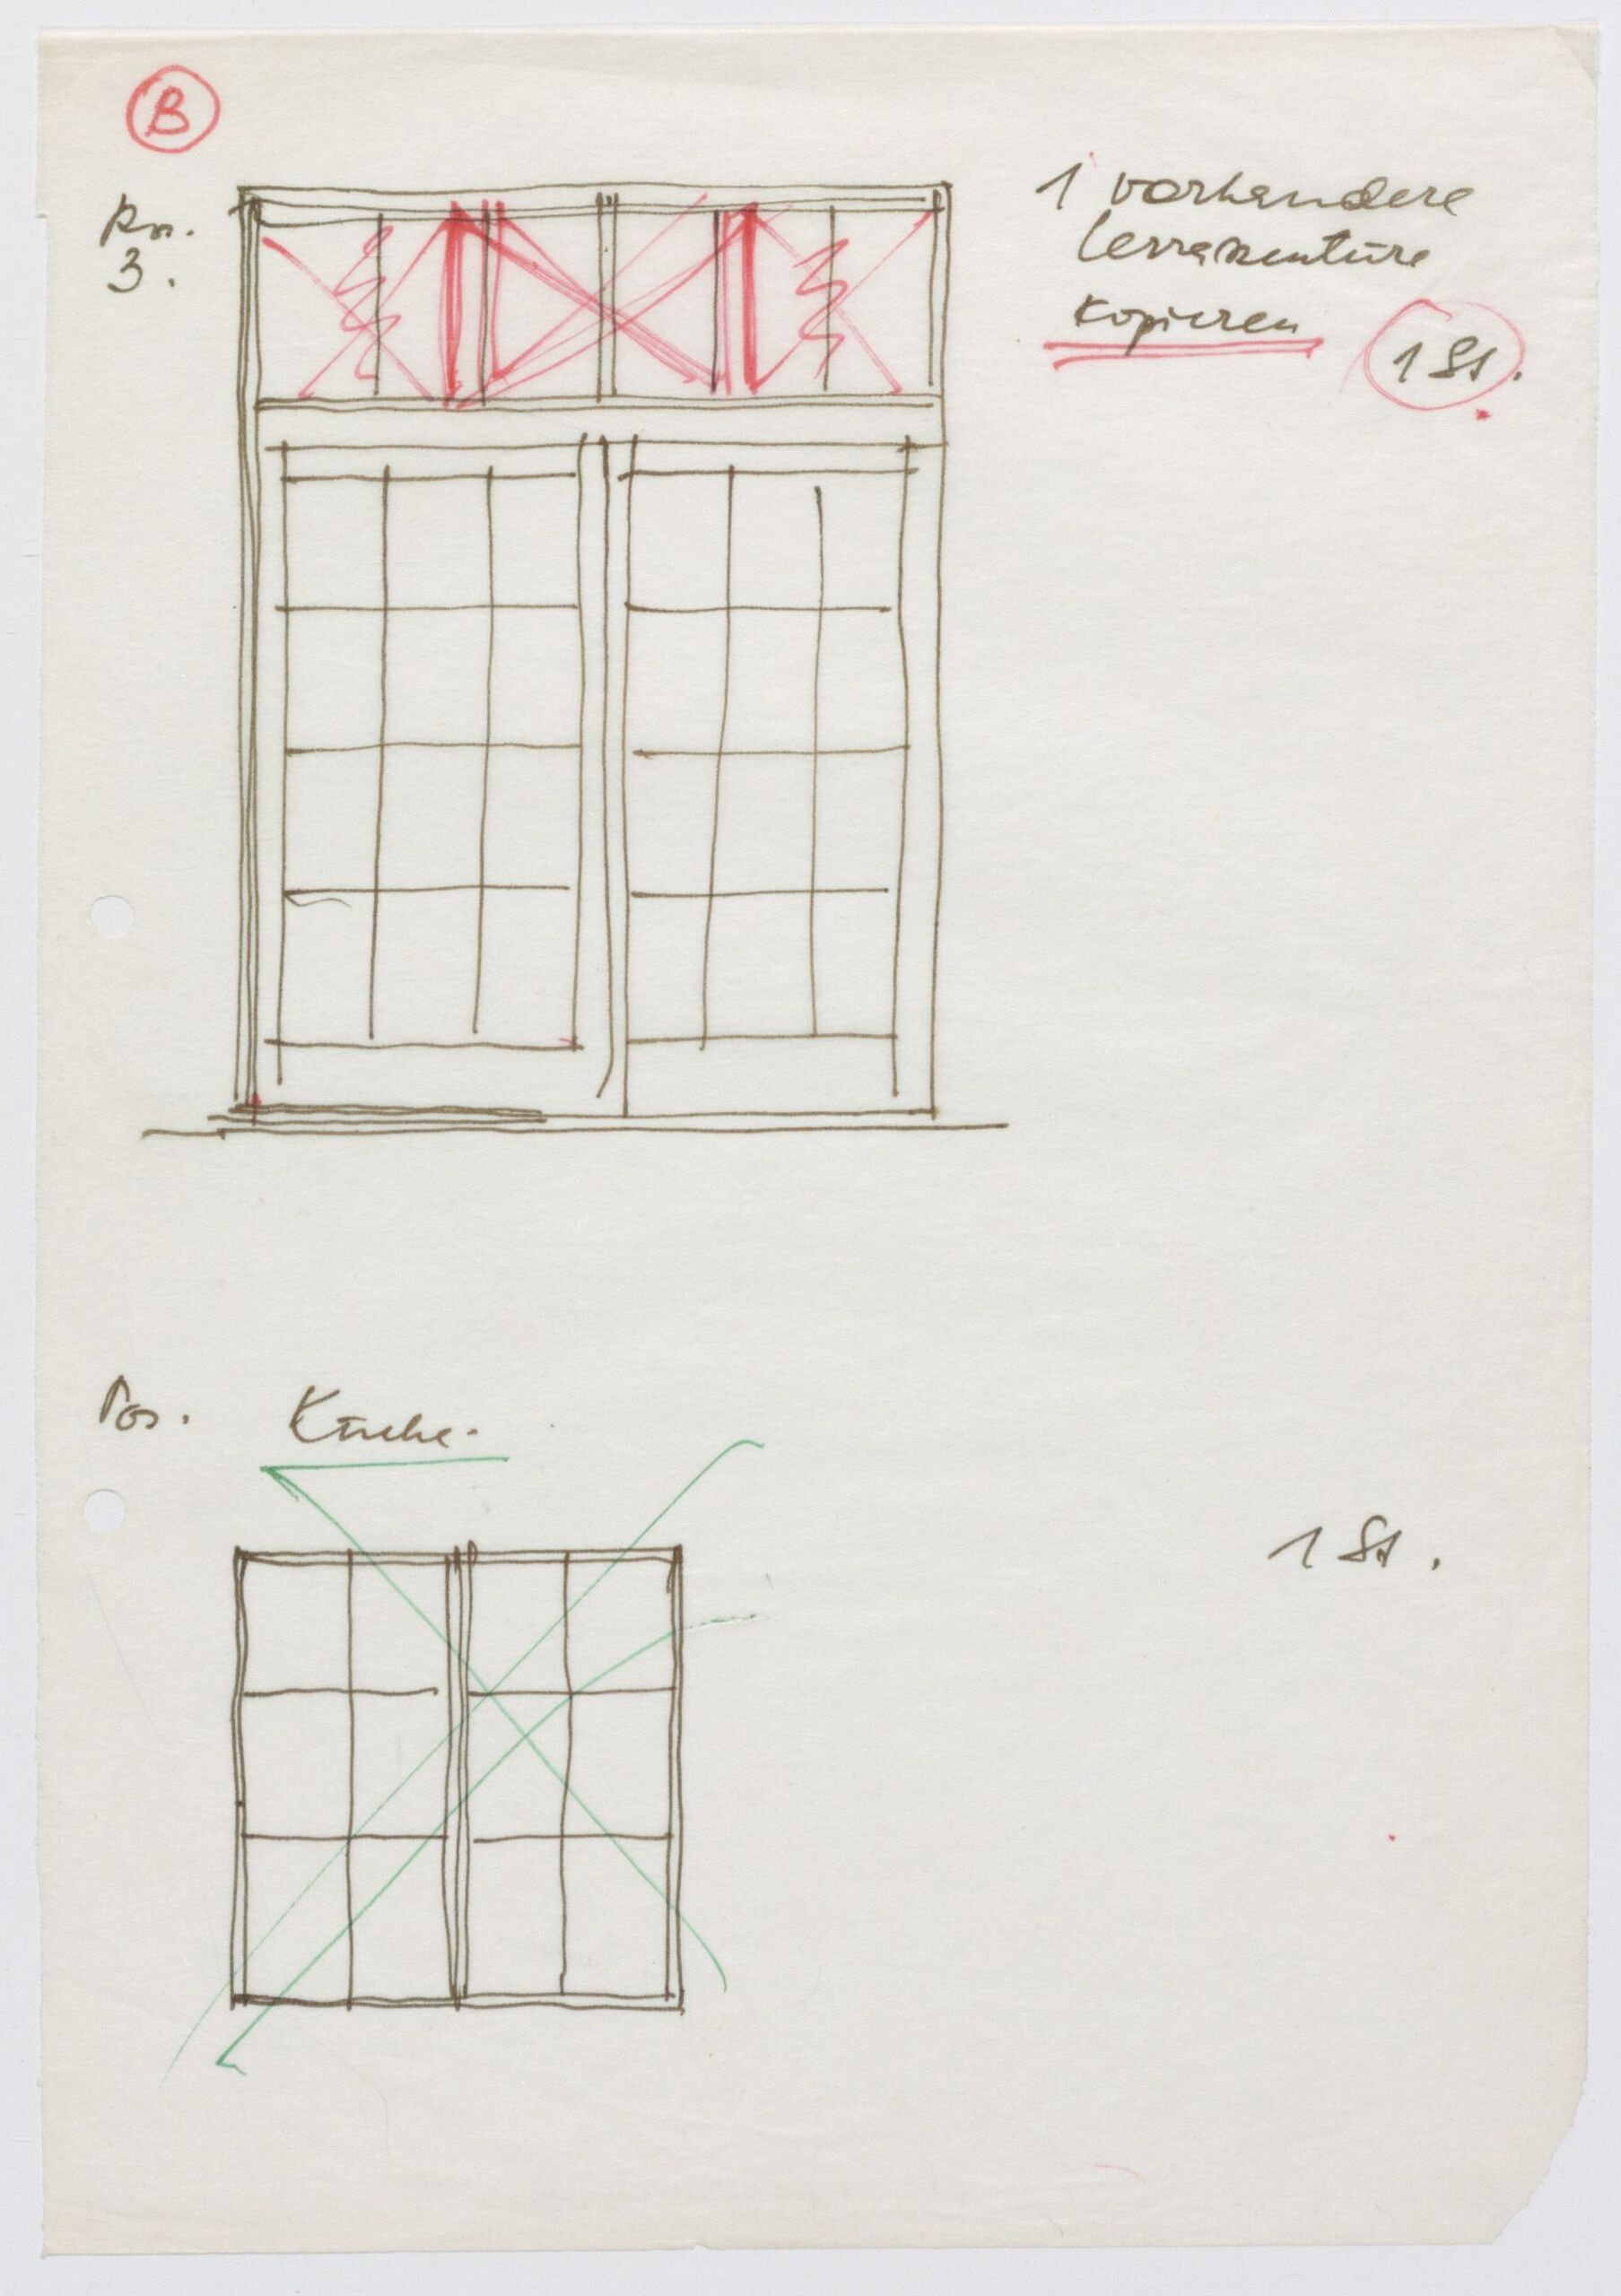 B
Pos.
3.
1 vorhandere
Terrassentüre
kopieren
1 St.
Pos. Küche.
1 St.